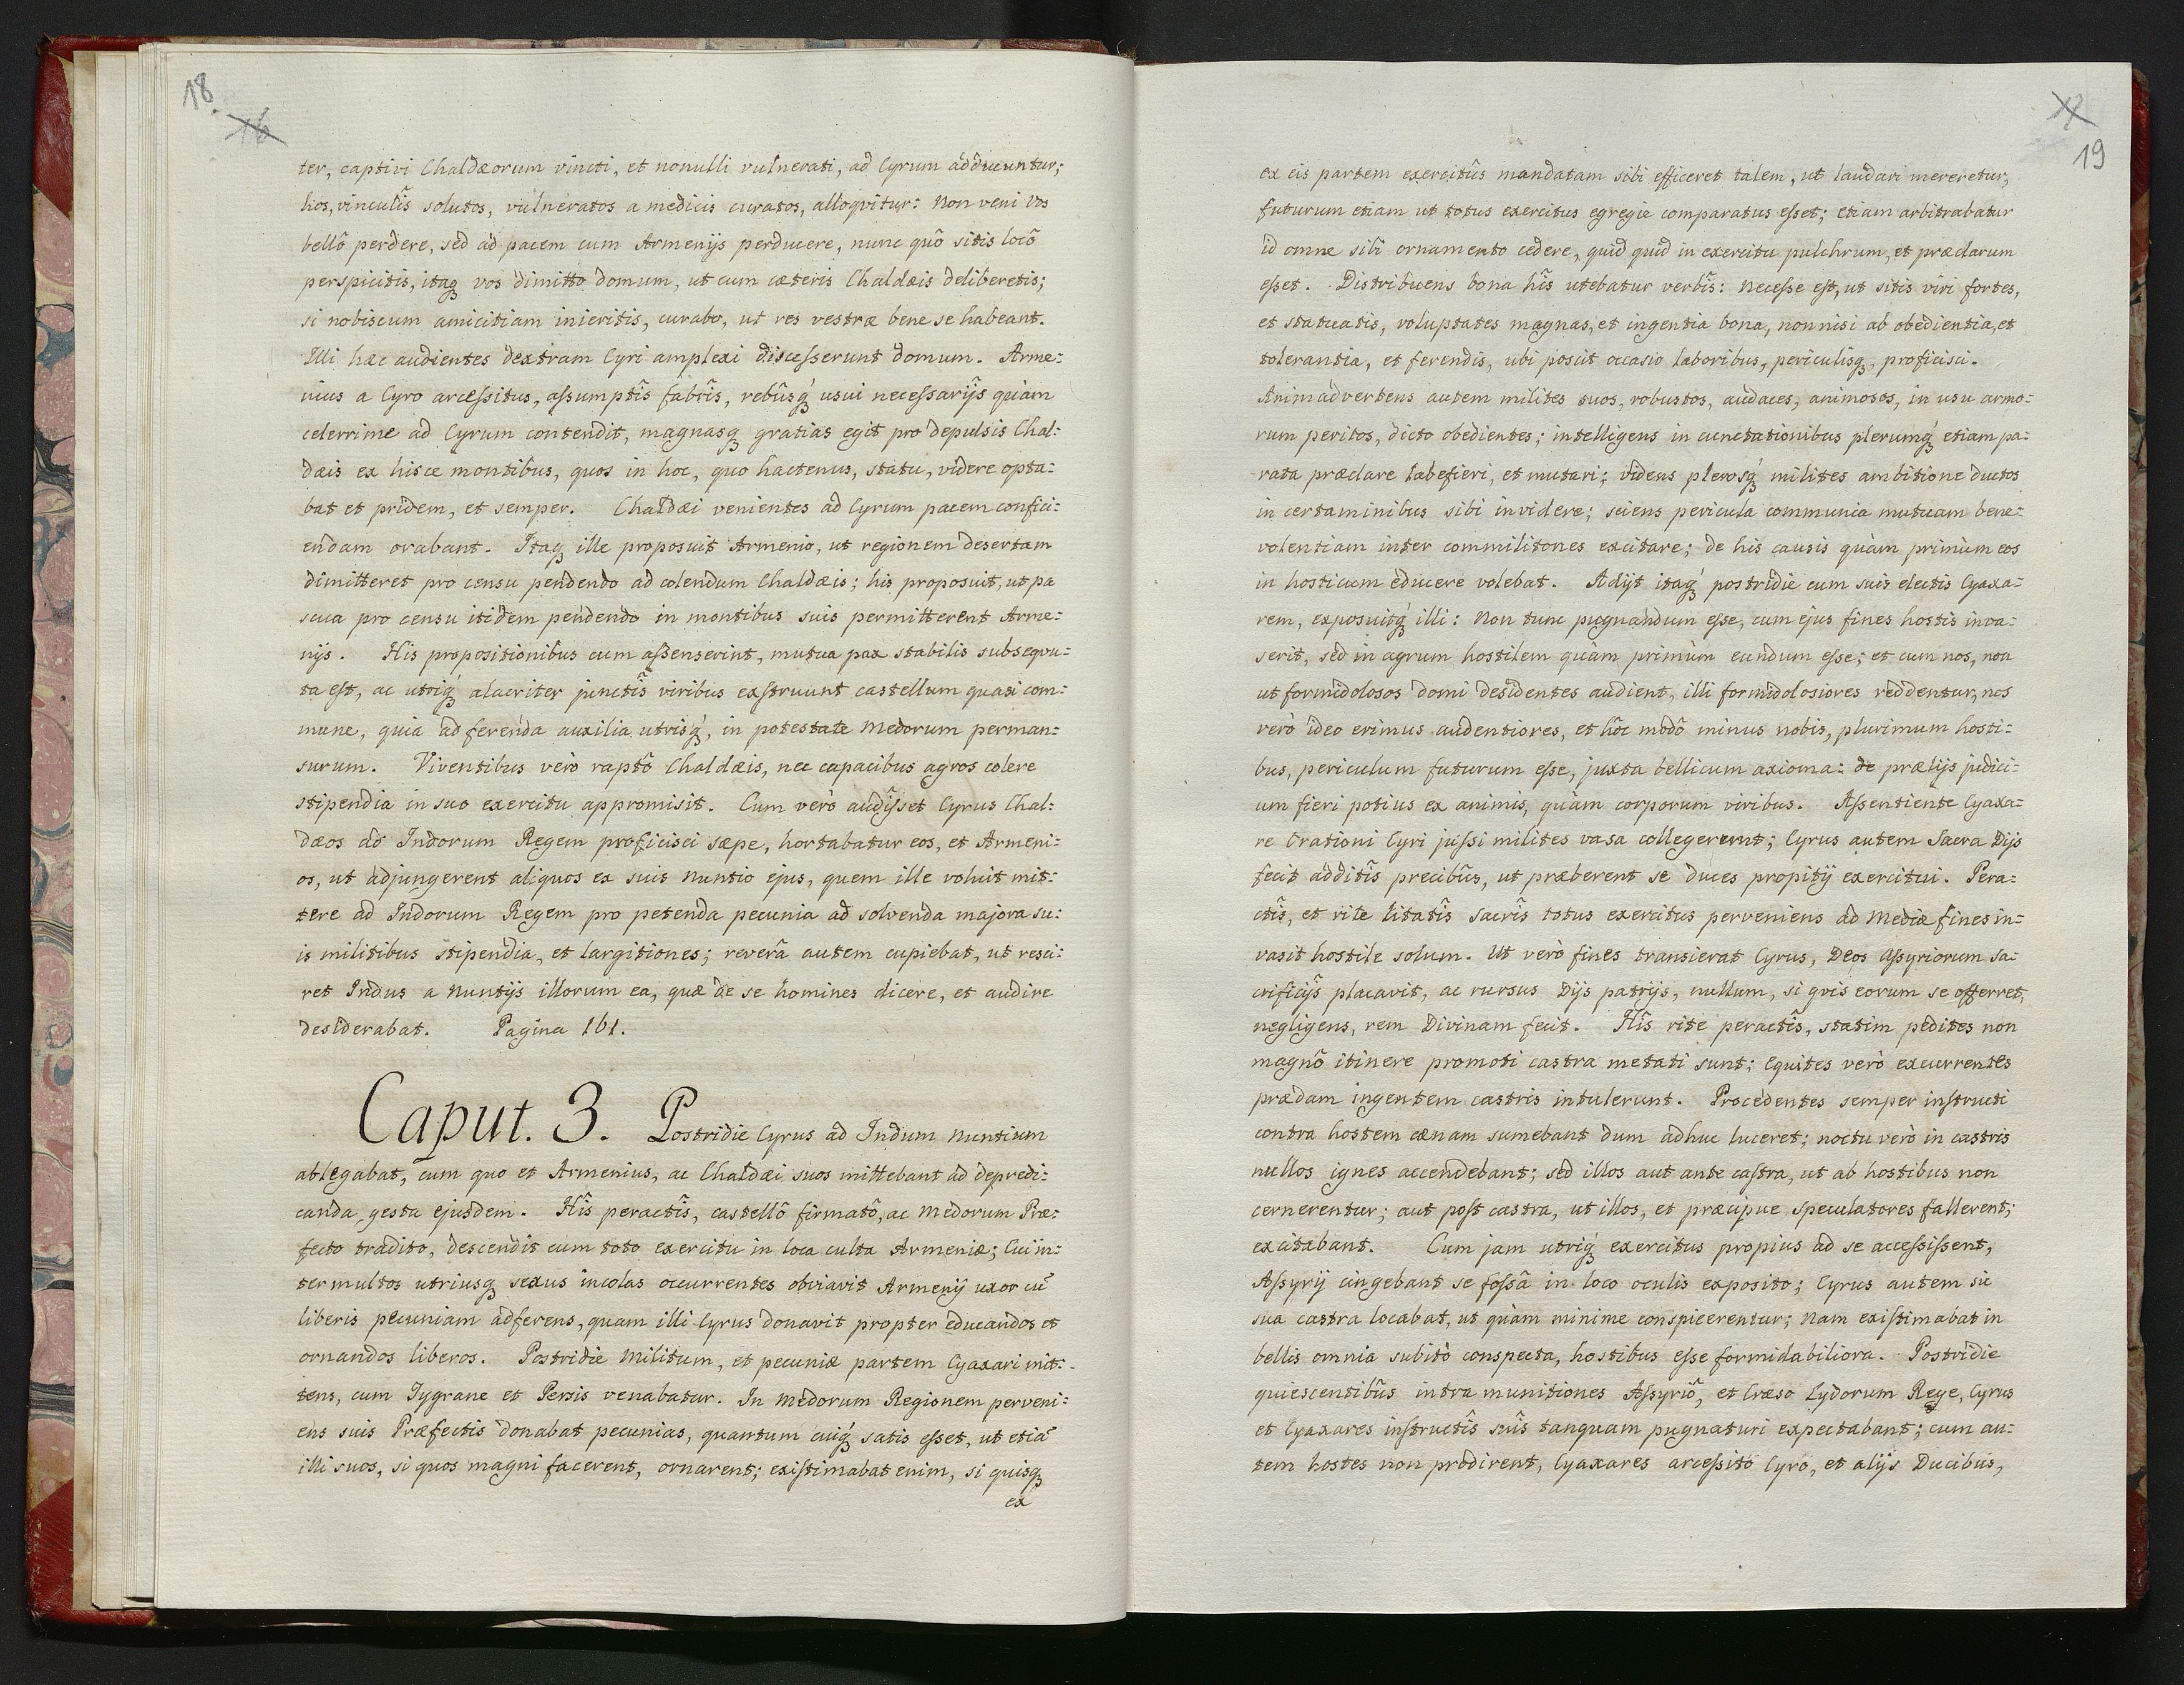 18.
16
ter, captivi Chaldæorum vincti, et nonulli vulnerati, ad Cyrum adducuntur;
hos, vinculîs solutos, vulneratos a medicis curatos, alloqvitur: Non veni vos
bellô perdere, sed ad pacem cum Armenijs perducere, nunc quô sitis locô
perspicitis, itaq́ vos dimitto domum, ut cum cæteris Chaldæis deliberetis;
si nobiscum amicitiam inieritis, curabo, ut res vestræ bene se habeant.
Illi hæc audientes dextram Cyri amplexi discesserunt domum. Arme:
nius a Cyro arcessitus, assumptîs fabrîs, rebûsq́ usui necessarijs quàm
celerrime ad Cyrum contendit, magnasq́ gratias egit pro depulsis Chal:
dæis ex hisce montibus, quos in hoc, quo hactenus, statu, videre opta:
bat et pridem, et semper. Chaldæi venientes ad Cyrum pacem confici:
endam orabant. Itaq́ ille proposuit Armenio, ut regionem desertam
dimitteret pro censu pendendo ad colendum Chaldæis; his proposuit, ut pa
scua pro censu itidem pendendo in montibus suis permitterent Arme:
nijs. His propositionibus cum assenserint, mutua pax stabilis subseqvu:
ta est, ac utriq́ alacriter junctîs viribus exstruunt castellum quasi com:
mune, quia ad ferenda auxilia utrisq́, in potestate Medorum perman:
surum. Viventibus verò raptô Chaldæis, nec capacibus agros colere
stipendia in suo exercitu appromisit. Cum verò audijsset Cyrus Chal:
dæos ad Indorum Regem proficisci sæpe, hortabatur eos, et Armeni:
os, ut adjungerent aliquos ex suis nuntio ejus, quem ille voluit mit:
tere ad Indorum Regem pro petenda pecunia ad solvenda majora su:
is militibus stipendia, et largitiones; reverâ autem cupiebat, ut resci:
ret Indus a Nuntijs illorum ea, quæ de se homines dicere, et audire
desiderabat. Pagina 161.
Caput. 3. Postridie Cyrus ad Indum Nuntium
ablegabat, cum quo et Armenius, ac Chaldæi suos mittebant ad depredi:
canda gesta ejusdem. Hîs peractîs, castellô firmatô, ac Medorum Præ:
fecto tradito, descendit cum toto exercitu in loca culta Armeniæ; cui in:
ter multos utriusq́ sexus incolas occurrentes obviavit Armenij uxor cū
liberis pecuniam adferens, quam illi Cyrus donavit propter educandos et
ornandos liberos. Postridie Militum, et pecuniæ partem Cyaxari mit:
tens, cum Tygrane et Persis venabatur. In Medorum Regionem perveni:
ens suis Præfectis donabat pecunias, quantum cuiq́ satis esset, ut etiā
illi suos, si quos magni facerent, ornarent; existimabat enim, si quisq́
ex
17
19
ex eis partem exercitûs mandatam sibi efficeret talem, ut laudari mereretur,
futurum etiam ut totus exercitus egregie comparatus esset; etiam arbitrabatur
id omne sibi ornamento cedere, quid quid in exercitu pulchrum, et præclarum
esset. Distribuens bona hîs utebatur verbîs: Necesse est, ut sitis viri fortes,
et statuatis, voluptates magnas, et ingentia bona, nonnisi ab obedientia, et
tolerantia, et ferendis, ubi poscit occasio laboribus, periculisq́, proficisci.
Animadvertens autem milites suos, robustos, audaces, animosos, in usu armo:
rum peritos, dicto obedientes; intelligens in cunctationibus plerumq́ etiam pa:
rata præclare labefieri, et mutari; videns plerosq́ milites ambitione ductos
in certaminibus sibi invidere; sciens pericula communia mutuam bene:
volentiam inter commilitones excitare; de his causis quàm primùm eos
in hosticum educere volebat. Adijt itaq́ postridie cum suis electis Cyaxa:
rem, exposuitq́ illi: Non tunc pugnandum esse, cum ejus fines hostis inva:
serit, sed in agrum hostilem quàm primùm eundum esse; et cum nos, non
ut formidolosos domi desidentes audient, illi formidolosiores reddentur, nos
verò ideo erimus audentiores, et hôc modô minus nobis, plurimum hosti:
bus, periculum futurum esse, juxta bellicum axioma: de prælijs judici:
um fieri potius ex animis, quàm corporum viribus. Assentiente Cyaxa:
re Orationi Cyri jussi milites vasa collegerunt; Cyrus autem Sacra Dijs
fecit additîs precibûs, ut præberent se duces propitij exercitui. Pera:
ctîs, et rite litatîs sacrîs totus exercitus perveniens ad Mediæ fines in:
vasit hostile solum. Ut verò fines transierat Cyrus, Deos Assyriorum sa:
crificijs placavit, ac rursus Dijs patrijs, nullum, si qvis eorum se offerret,
negligens, rem Divinam fecit. Hîs rite peractîs, statim pedites non
magnô itinere promoti castra metati sunt; Equites verò excurrentes
prædam ingentem castris intulerunt. Procedentes semper instructi
contra hostem cænam sumebant dum adhuc luceret; noctu verò in castris
nullos ignes accendebant; sed illos aut ante castra, ut ab hostibus non
cernerentur; aut post castra, ut illos, et præcipue speculatores fallerent;
excitabant. Cum jam utriq́ exercitus propius ad se accessissent,
Assyrij cingebant se fossâ in loco oculis exposito; Cyrus autem sic
sua castra locabat, ut quàm minime conspicerentur; Nam existimabat in
bellis omnia subitò conspecta, hostibus esse formidabiliora. Postridie
quiescentibûs intra munitiones Assyriô, et Cræso Lydorum Rege, Cyrus
et Cyaxares instructîs suîs tanquam pugnaturi expectabant; cum au:
tem hostes non prodirent, Cyaxares arcessito Cyro, et alijs Ducibus,